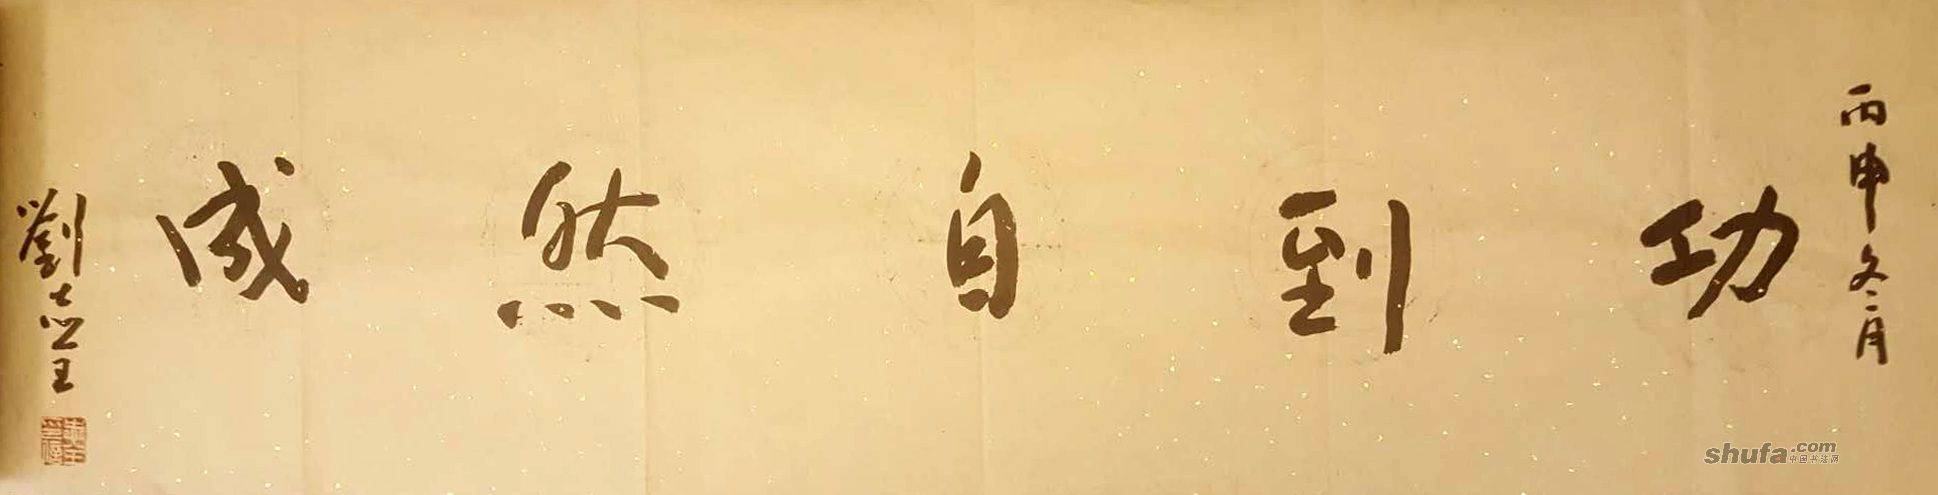 丙申冬二月
功到自然成
劉志堅
shufa.com
中国书法网